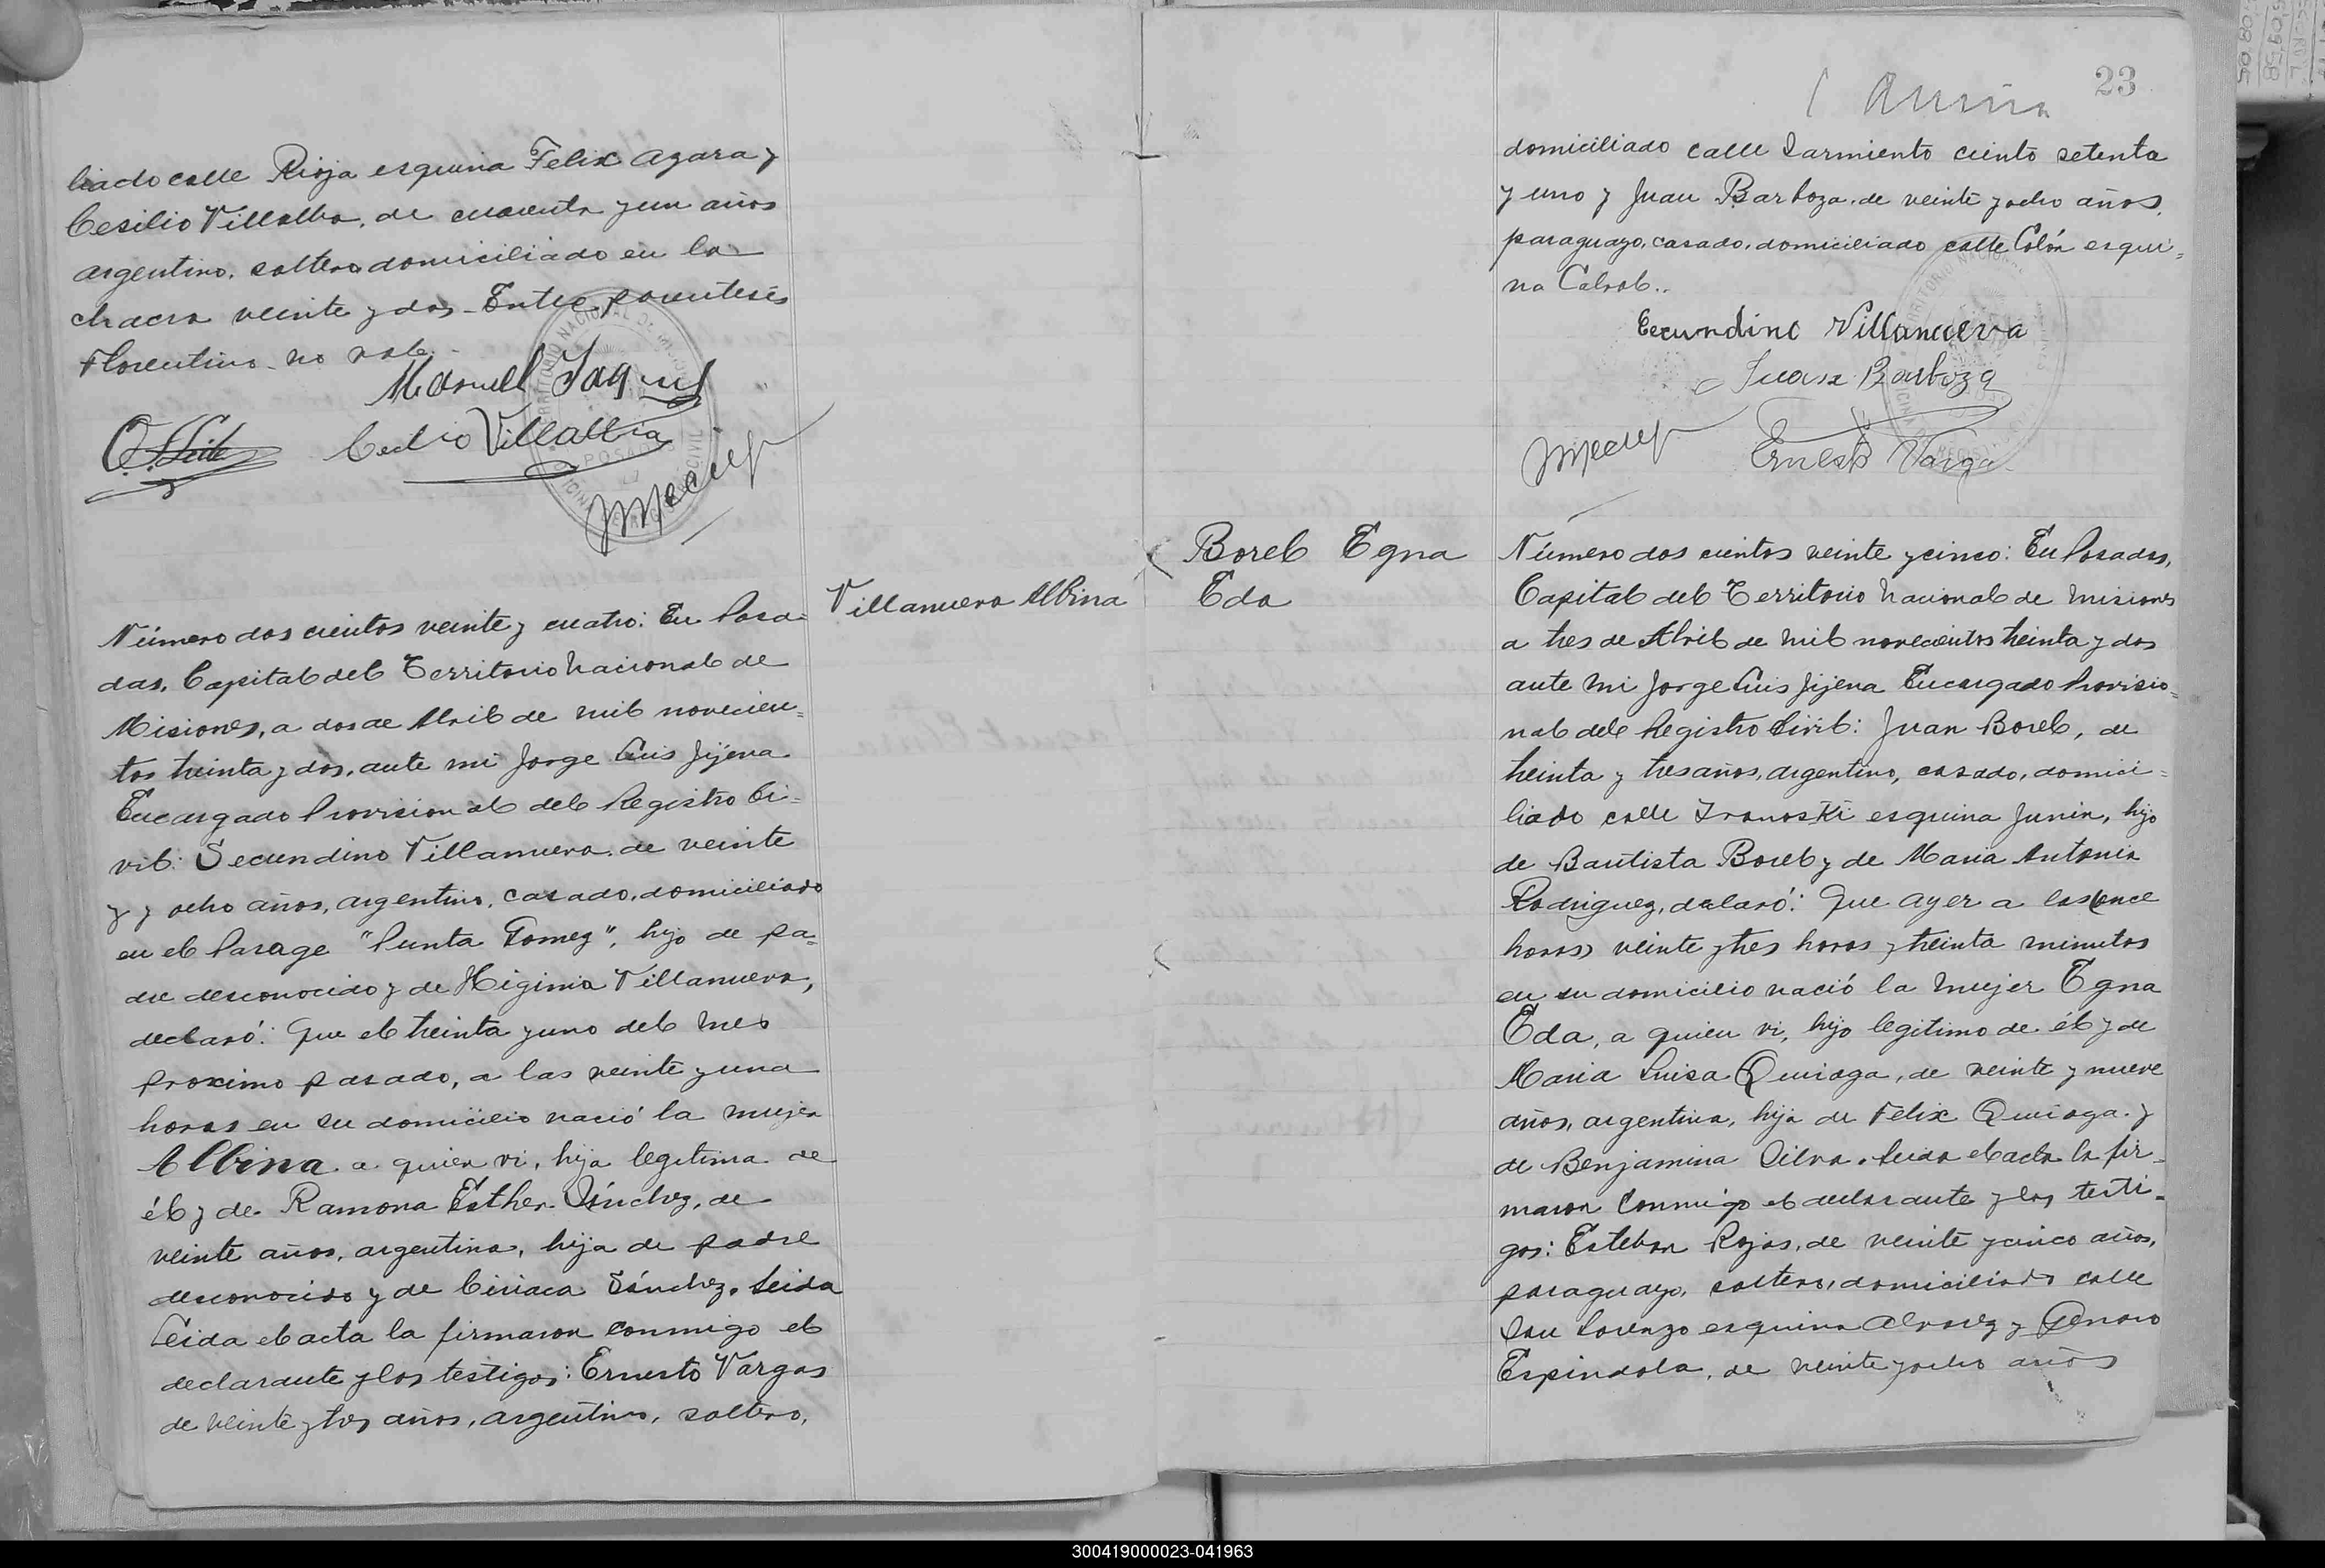 liado calle Rioja esquina Felix Azara y
Cesilio Villalba, de cuarenta y un años
argentino, soltero domiciliado en la
chacra veinte y dos - Entre parentesis
Florentino no vale.-
Manuel
Villalba
Número dos cientos veinte y cuatro: En Posa-
das, Capital del Territorio Nacional de
Misiones, a dos de Abril de mil novecien-
tos treinta y dos, ante mi Jorge Luis Jijena
Encargado Provisional del Registro Ci-
vil: Secundino Villanueva, de veinte
y y ocho años, argentino, casado, domiciliado
en el Parage "Punta Gomez", hijo de pa-
dre desconocido y de Higinia Villanueva,
declaró: Que el treinta y uno del mes
proximo pasado, a las veinte y una
horas en su domicilio nació la mujer
Albina a quien vi, hija legitima de
él y de Ramona Esther Sánchez, de
veinte años, argentina, hija de padre
desconocido y de Ciriaca Sánchez. Leida
Leida el acta la firmaron conmigo el
declarante y los testigos: Ernesto Vargas
de veinte y tres años, argentino, soltero,
Villanueva Albina
23
domiciliado calle Sarmiento ciento setenta
y uno y Juan Barboza, de veinte y ocho años,
paraguayo, casado, domiciliado calle Colón esqui-
na Cabral..
Secundino Villanueva
Juan Barboza
Ernesto Varga
Borel Egna
Eda
Número dos cientos veinte y cinco: En Posadas,
Capital del Territorio Nacional de Misiones
a tres de Abril de mil novecientos treinta y dos
ante mi Jorge Luis Jijena Encargado Provisio-
nal del Registro Civil: Juan Borel, de
treinta y tres años, argentino, casado, domici-
liado calle Ivanoski esquina Junin, hijo
de Bautista Borel y de Maria Antonia
Rodriguez, declaró: Que ayer a las (once
horas) veinte y tres horas y treinta minutos
en su domicilio nació la mujer Egna
Eda, a quien vi, hijo legitimo de él y de
Maria Luisa Quiroga, de veinte y nueve
años, argentina, hija de Felix Quiroga y
de Benjamina Silva. Leida el acta la fir-
maron conmigo el declarante y los testi-
gos: Esteban Rojas, de veinte y cinco años,
paraguayo, soltero, domiciliado calle
San Lorenzo esquina Alvarez y Genaro
Espindola, de veinte y ocho años
300419000023-041963